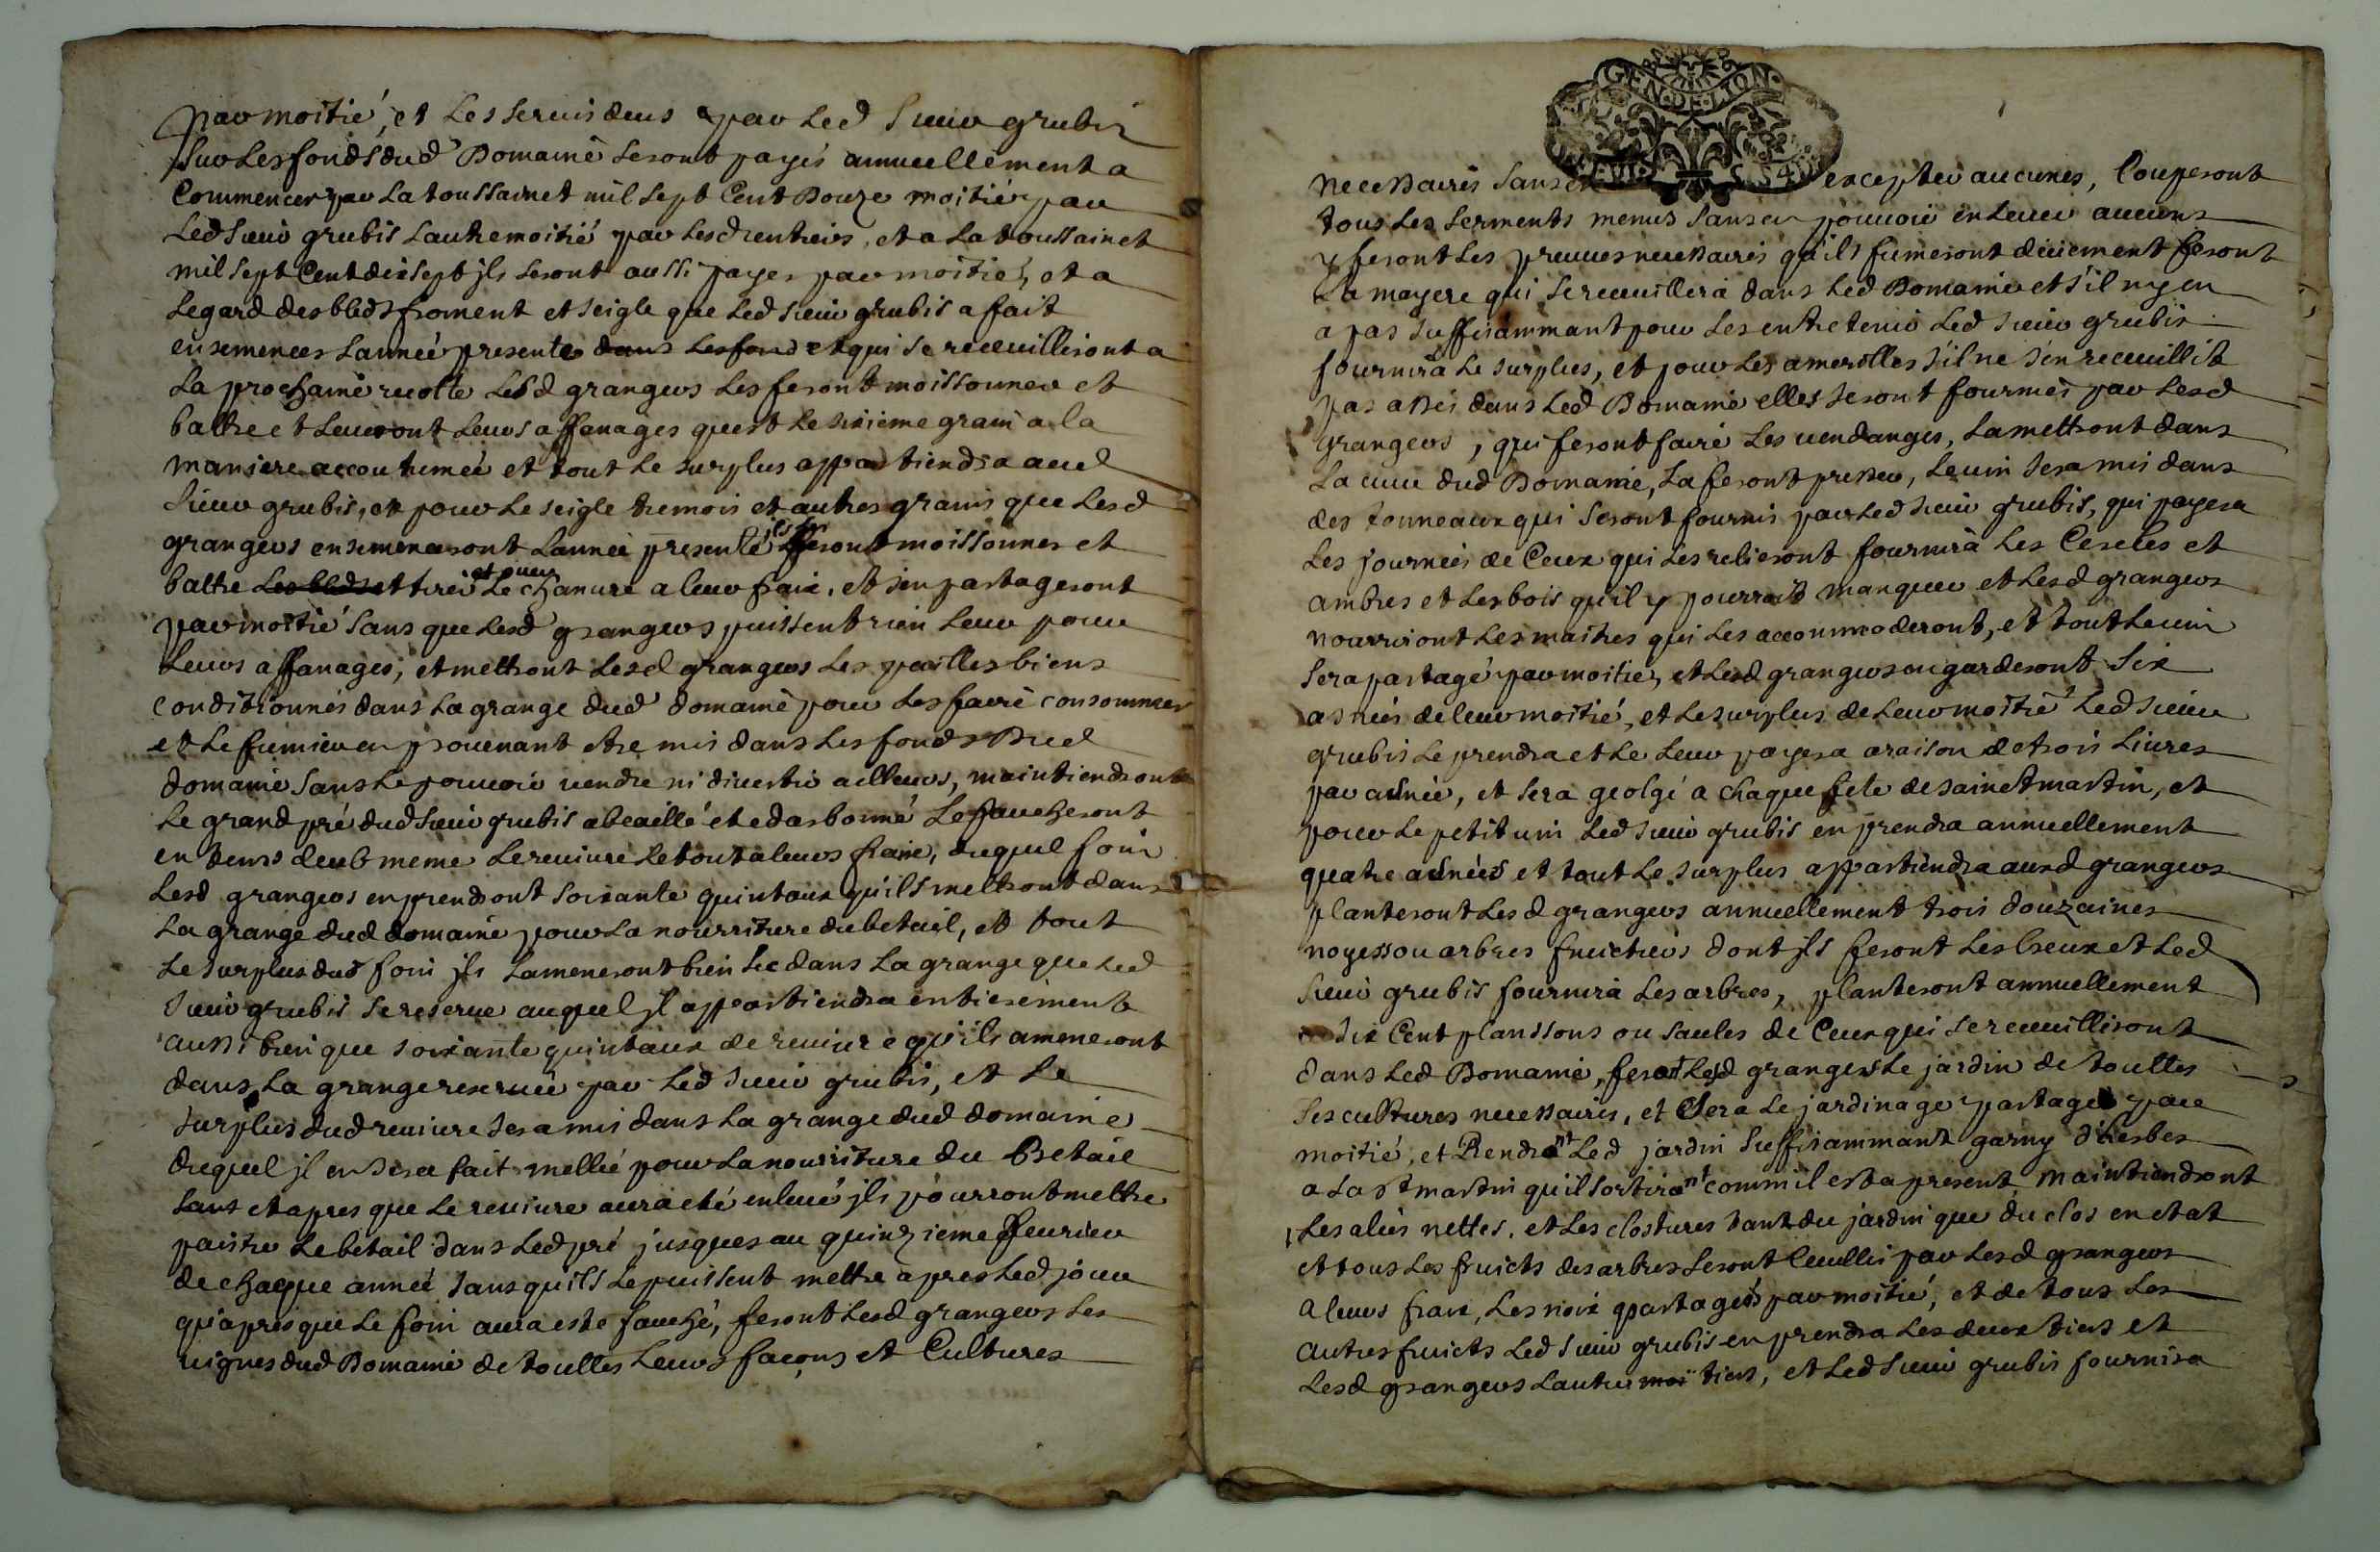 par moitié, et Les servis deus par Led Sieur grubis
Sur Les fonds dud Domaine seront payés annuellement a
Commencer par La toussainct mil sept Cent Douze moitié par
Led Sieur grubis Lautre moitié par Lesd rentiers, et a La toussainct
mil sept Cent dix sept jls seront aussi payes par moitié, et a
Legard des bleds froment et seigle que Led sieur grubis a fait
ensemencer Lannée presente dans Les fond et qui se recueilliront a
La prochaine recolte Lesd grangers Les feront moissonner et
battre et Leveront Leurs affanages quest Le sixieme grain a la
maniere accoutumée et tout Le surplus appartiendra aud
Sieur grubis, et pour Le seigle tremois et autres grains que Lesd
grangers ensemenceront Lannée presente ils les feront moissonner et
battre Les bleds et tirer et Le chanure a leur frais, et sen partageront
par moitié sans que Lesd grangers puissent rien Lever pour
Leurs affanages, et mettront Lesd grangers Les pailles biens
conditionnés dans La grange dud domaine pour Les faire consommer
et Le fumier en provenant etre mis dans Les fonds Dud
domaine sans Le pouvoir vendre ni divertir ailleurs, maintiendront
Le grand pré dud sieur grubis abeaillé et edarbonné Le faucheront
en tems deub meme Le reviure Le tout a leurs frais, duquel foin
Lesd grangers en prendront soixante quintaux qu'ils mettront dans
La grange dud domaine pour La nourriture du betail, et tout
Le surplus dud foin jls Lameneront bien sec dans La grange que Led
Sieur grubis se reserve auquel jl appartiendra entierement
aussi bien que soixante quintaux de reviure qu'ils ameneront
dans La grange reservée par Led sieur grubis, et Le
surplus dud reviure sera mis dans La grange dud domaine
duquel jl en sera fait mellée pour La nourriture du Betail
sans et apres que Le reviure aura eté enlevé jls pourront mettre
paitre Le betail dans Led pré jusques au quinzieme ffevrier
de chaque année sans quils Le puissent mettre apres Led jour
qu'apres que Le foin aura esté fauché, feront Lesd grangers Les
vignes dud Domaine de touttes Leurs façons et Cultures
GEN·DE·LYON
necessaires sans en excepter aucunes, Couperont
tous Les serments menus sans en pouvoir enlever aucuns
y feront Les preuves necessaires qu'ils fumeront deüement feront
La mayere qui se recueillera dans Led Domaine et s'il ny en
a pas suffisammant pour Les entretenir Led sieur grubis
fournira Le surplus, et pour Les amerolles s'il ne s'en recueillit
pas assés dans Led Domaine elles seront fournies par Lesd
grangers, qui feront faire Les vendanges, La mettront dans
La cuve dud Domaine, La feront presser, Le vin sera mis dans
des tonneaux qui seront fournis par Led sieur grubis, qui payera
Les journées de Ceux qui Les relieront fournira Les Cercles et
ambres et Les bois qu'il y pourroit manquer et Lesd grangers
nourriront Les maitres qui Les accommoderont, et tout Le vin
sera partagé par moitié, et Lesd grangers en garderont six
asnées de leur moitié, et Le surplus de Leur moitié Led sieur
grubis Le prendra et Le Leur payera a raison de trois Livres
par asnée, et sera geolgé a chaque fete de sainct martin, et
pour Le petit vin Led sieur grubis en prendra annuellement
quatre asnées et tout Le surplus appartiendra ausd grangers
planteront Lesd grangers annuellement trois douzaines
noyers ou arbres fruictiers dont jls feront Les creux et Led
Sieur grubis fournira Les arbres, planteront annuellement
six Cent planssons ou saules de Ceux qui se recueilliront
dans Led Domaine, feront Lesd grangers Le jardin de touttes
Ses cultures necessaires, et sera Le jardinage partagé par
moitié, et Rendront Led jardin suffisammant garny d'herbes
a La st martin qu'il sortiront comm'il est a present, maintiendront
Les alées nettes, et Les clostures tant du jardin que du clos en etat
et tous Les fruicts des arbres seront Cueillis par Lesd grangers
a leurs frais, Les noix partagées par moitié, et de tous Les
autres fruicts Led sieur grubis en prendra Les deux tiers et
Lesd grangers Lautre moi tiers, et Led sieur grubis fournira